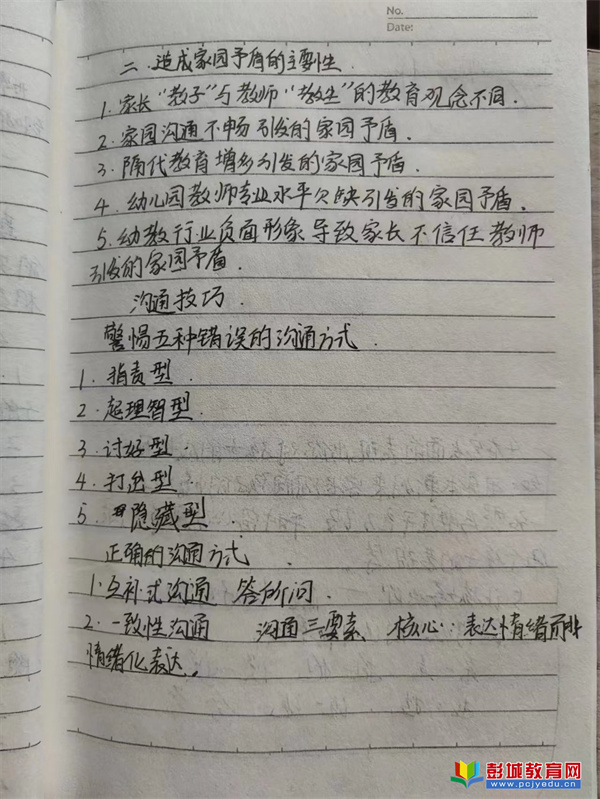 No.
Date:
二、造成家园矛盾的主要性
1.家长“教子”与教师“教生”的教育观念不同.
2.家园沟通不畅引发的家园矛盾.
3.隔代教育增多引发的家园矛盾.
4.幼儿园教师专业水平欠缺引发的家园矛盾.
5.幼教行业负面形象导致家长不信任教师
引发的家园矛盾.
沟通技巧.
警惕五种错误的沟通方式.
1.指责型.
2.起理智型.
3.讨好型.
4.打岔型.
5.隐藏型.
正确的沟通方式.
1.互补式沟通 答所问.
2.一致性沟通 沟通三要素、核心:表达情绪而非
情绪化表达.
彭城教育网
www.pcjyedu.cn